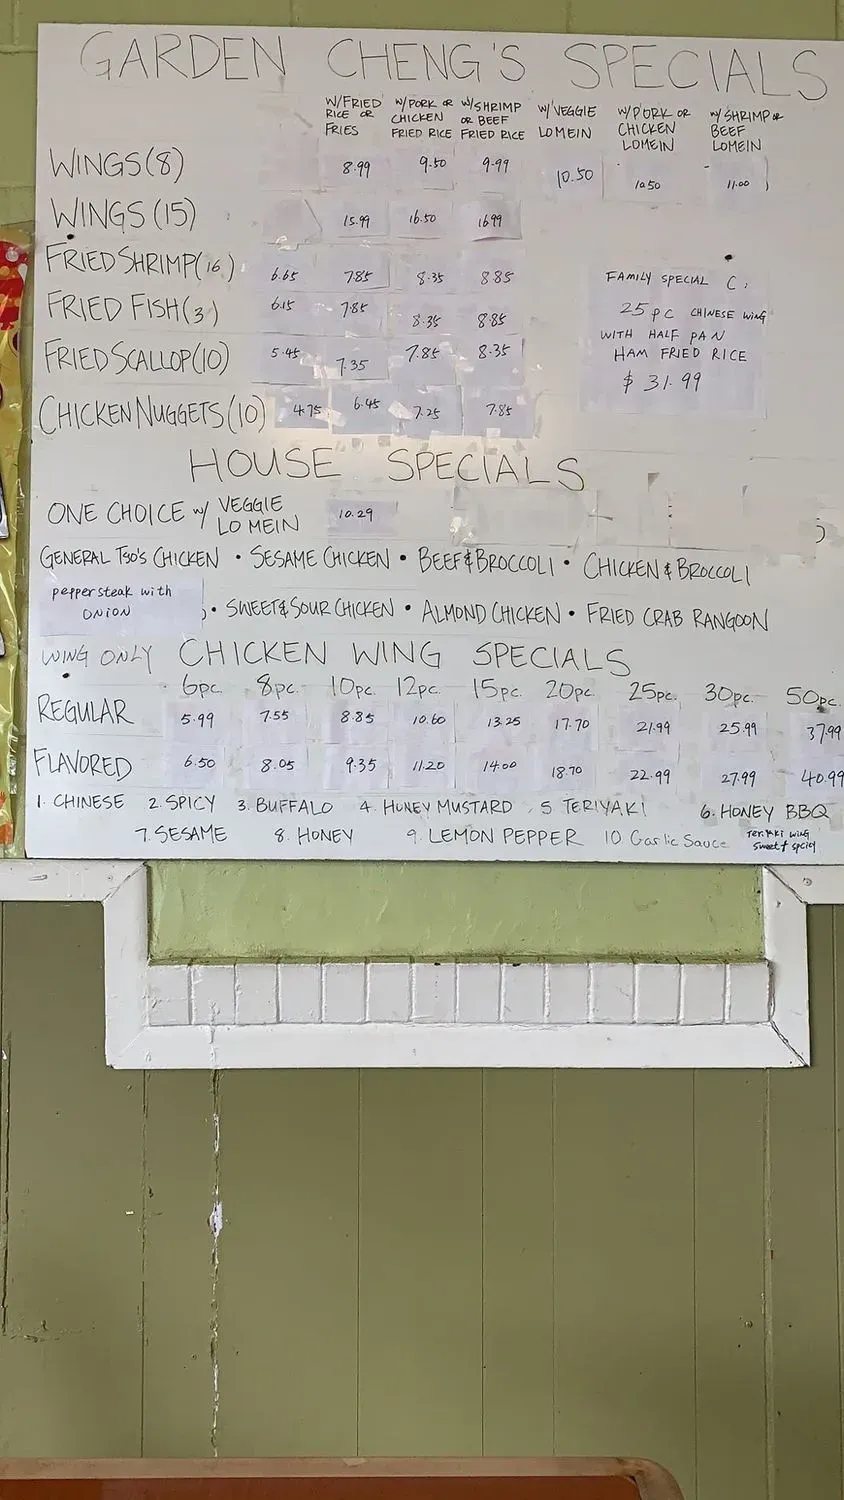 GARDEN CHENG'S SPECIALS
W/FRIED RICE OR FRIES W/PORK OR CHICKEN FRIED RICE W/SHRIMP OR BEEF FRIED RICE W/VEGGIE LOMEIN W/PORK OR CHICKEN LOMEIN W/SHRIMP OR BEEF LOMEIN
WINGS(8) 8.99 9.50 9.99 10.50 10.50 11.00
WINGS(15) 15.99 16.50 16.99
FRIED SHRIMP(16) 6.65 7.85 8.35 8.85
FRIED FISH(3) 6.15 7.85 8.35 8.85
FRIED SCALLOP(10) 5.45 7.35 7.85 8.35
CHICKEN NUGGETS(10) 4.75 6.45 7.25 7.85
FAMILY SPECIAL C,
25 PC CHINESE WING
WITH HALF PAN
HAM FRIED RICE
$ 31.99
HOUSE SPECIALS
ONE CHOICE W/ VEGGIE LO MEIN 10.29
GENERAL TSO'S CHICKEN • SESAME CHICKEN • BEEF & BROCCOLI • CHICKEN & BROCCOLI
pepper steak with ONION • SWEET & SOUR CHICKEN • ALMOND CHICKEN • FRIED CRAB RANGOON
WING ONLY CHICKEN WING SPECIALS
6pc. 8pc. 10pc. 12pc. 15pc. 20pc. 25pc. 30pc. 50pc.
REGULAR 5.99 7.55 8.85 10.60 13.25 17.70 21.99 25.99 37.99
FLAVORED 6.50 8.05 9.35 11.20 14.00 18.70 22.99 27.99 40.99
1. CHINESE 2. SPICY 3. BUFFALO 4. HONEY MUSTARD 5. TERIYAKI 6. HONEY BBQ
7. SESAME 8. HONEY 9. LEMON PEPPER 10 Garlic Sauce Teriyaki wing
sweet & spicy